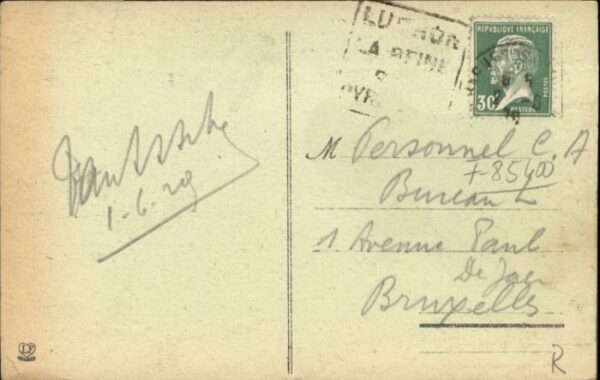 LUCHON
LA REINE
PYR
RÉPUBLIQUE FRANÇAISE
30c
POSTES
M Personnel C. A
+ 85400
Bureau L
1 Avenue Paul
De Jaer
Bruxelles
1-6.29
R